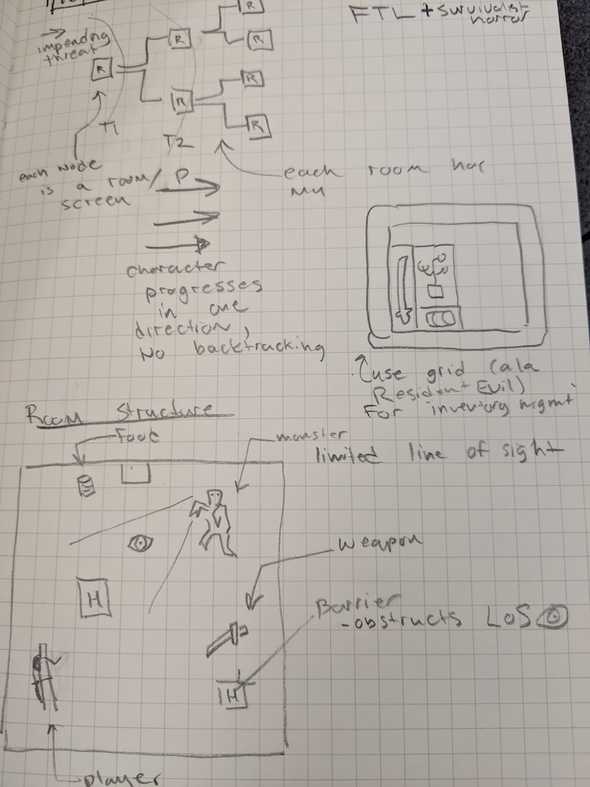 FTL + Survivalist horror
impending threat
R
R
R
R
R
R
R
T1
T2
each node is a room/screen
P
each room has
character progresses in one direction, No backtracking
use grid (ala Resident Evil) For inventory mgmt
Room Structure
Food
monster
limited line of sight
weapon
H
Barrier
-obstructs LoS
H
player